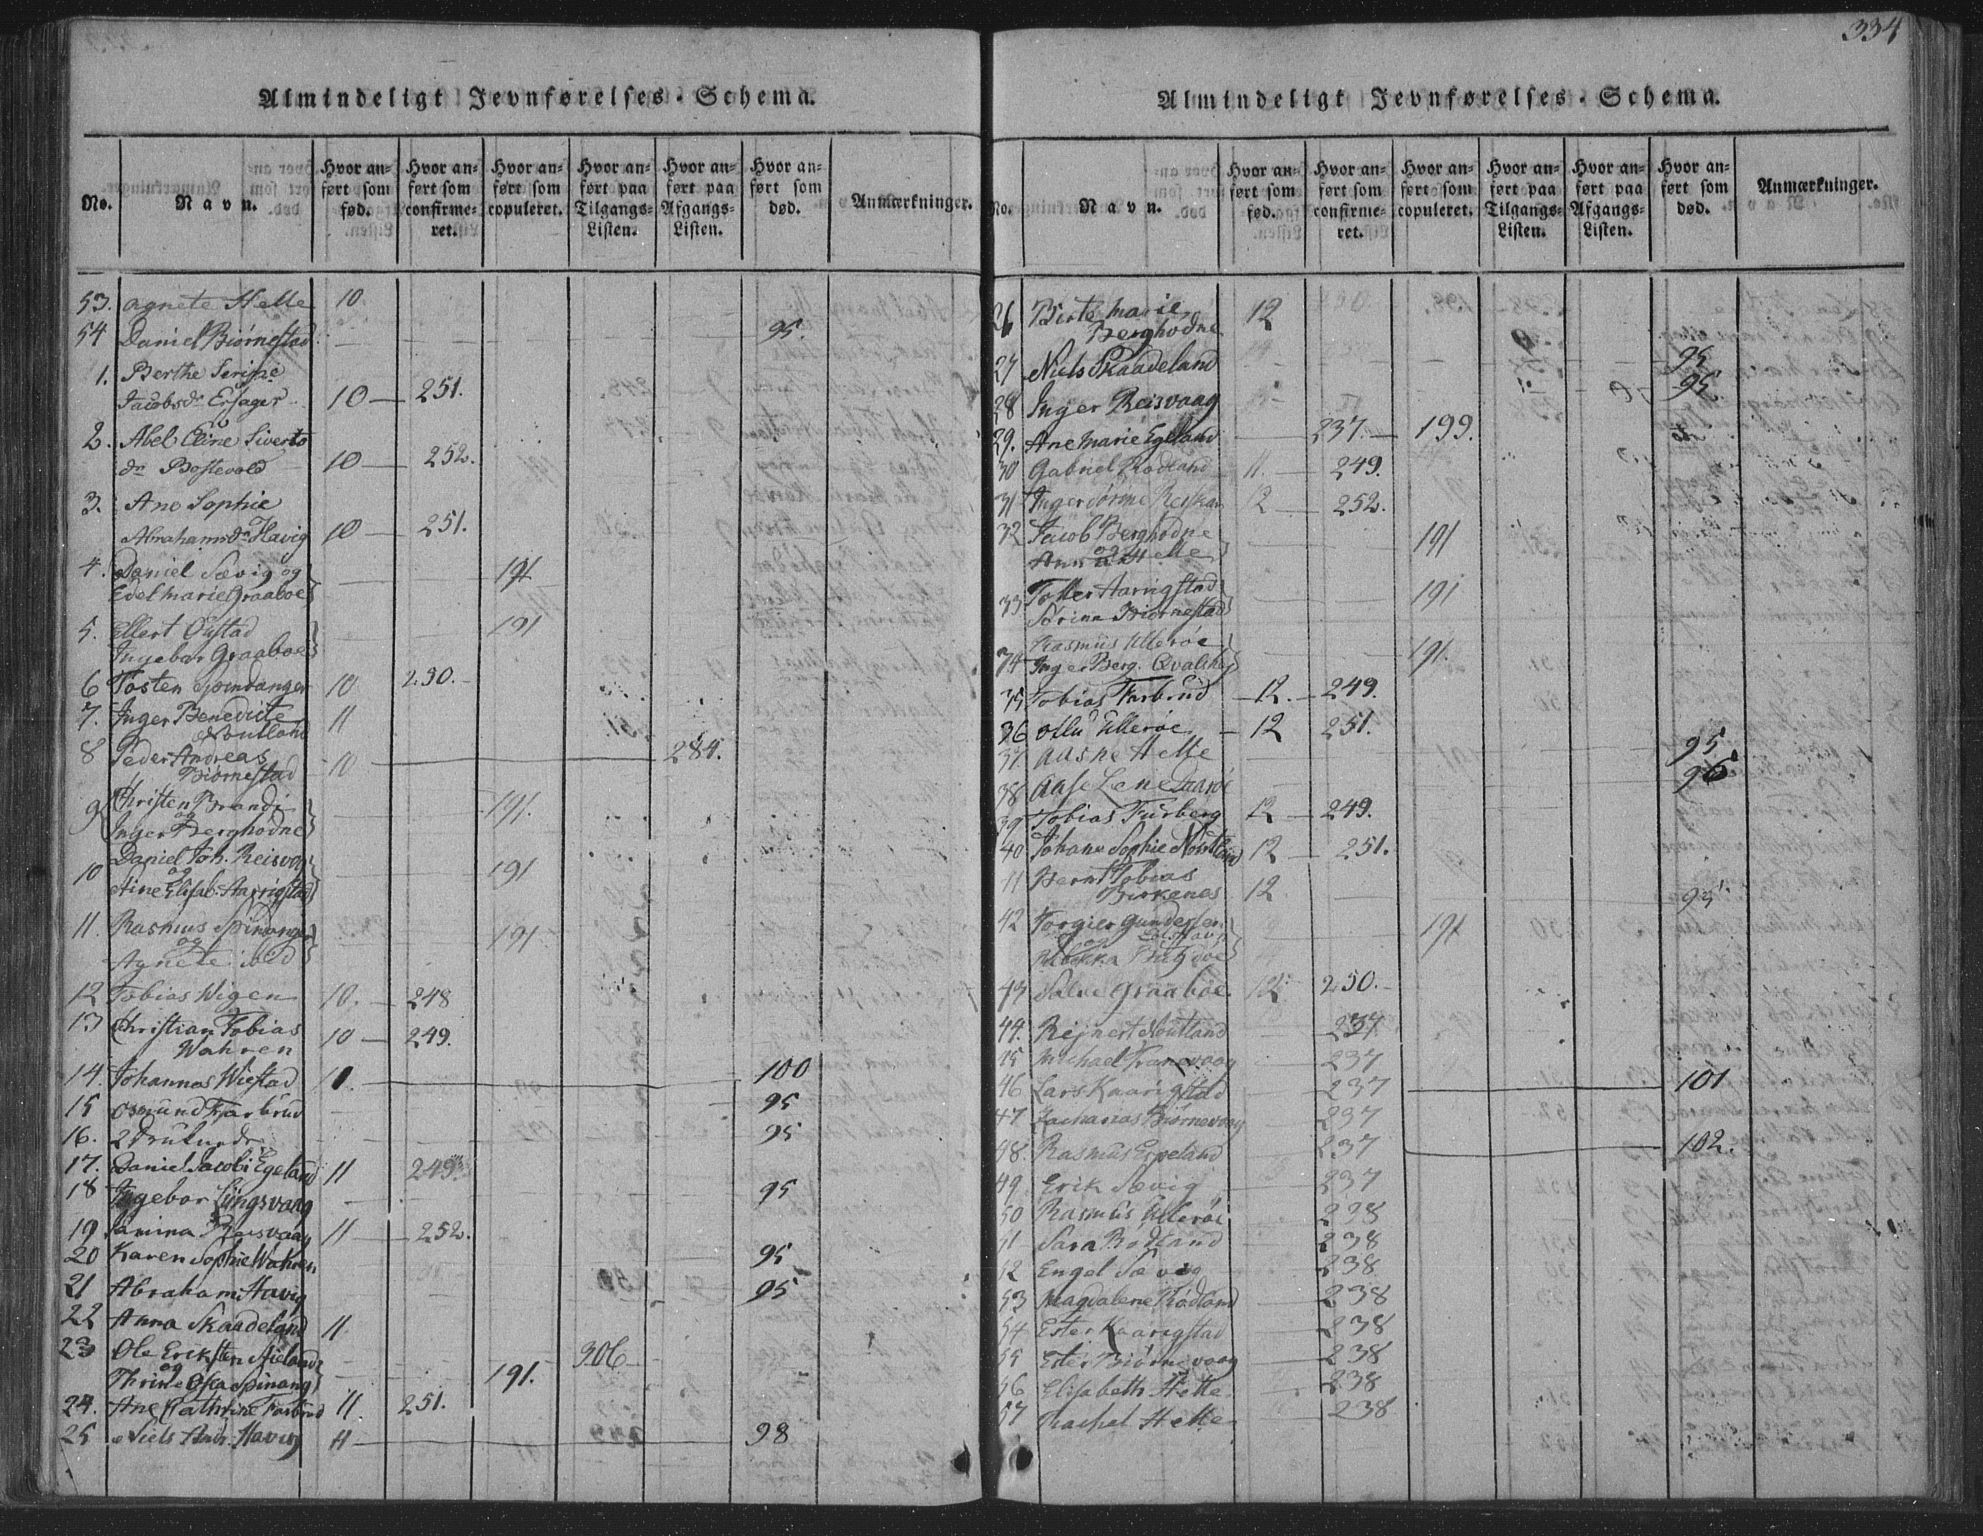 334
Almindeligt Jevnførelses-Schema.
No. Navn. Hvor anført som fød. Hvor anført som confirmeret. Hvor anført som copuleret. Hvor anført paa Tilgangs-Listen. Hvor anført paa Afgangs-Listen. Hvor anført som død. Anmærkninger.
53. Agnete Helle 10
54 Daniel Biørnestad 95.
1. Berthe Serine
Jacobsdr Ersager 10 251.
2. Abel Eline Siverts
dr Bostevold 10 252.
3. Ane Sophie
Abrahamsdr Havig 10 251.
4. Daniel Sævig og
Edel Marie Graaboe 191
5. Ellert Øustad
Ingebor Graaboe 191
6 Tosten Spindanger 10 250.
7. Inger Benedicte
Noutland 11
8 Peder Andreas
Biørnestad 10 284.
9 Christen Brandi
og
Inger Berghodne 191.
10 Daniel Joh. Reisvog
og
Aine Elisab. Aarrigstad 191
11. Rasmus Spindanger
og
Agnete ibid 191
12 Tobias Wigen 10. 248
13 Christian Tobias
Wahren 10 249.
14. Johannes Wiestad 11. 100
15 Osmund Farbrud 95
16. 2 95
17. Daniel Jacobi Egeland 11 249.
18 Ingebor Lüngsvaag 95
19 Janina Reisvaag 11 252.
20 Karen Sophie Wahren 95
21 Abraham Havig 95
22 Anna Skaadeland 11
23 Ole Eriksten
og
Thrine Spinang 191. 306
24. Ane Cathrine Farbrud 11 251.
25 Niels Andr. Havig 11 98
Almindeligt Jevnførelses-Schema.
No. Navn. Hvor anført som fød. Hvor anført som confirmeret. Hvor anført som copuleret. Hvor anført paa Tilgangs-Listen. Hvor anført paa Afgangs-Listen. Hvor anført som død. Anmærkninger.
26 Birte Marie
Berghodne 12
27 Niels Skaadeland 95
28 Inger Reisvaag 95
29. Ane Marie Egeland 237. 199.
30 Gabriel Rødland 11. 249.
31 Inger Jørine 12 252.
32 Jacob Berghodne
og
Anna Helle 191
33 Tosler Aarrigstad
Sørine Biørnestad 191
34 Rasmus Ullerøe
Inger Berg. Qvalshej 191.
35 Tobias Farbrud 12. 249.
36 Ollu Ullerøe 12 251.
37. Aasne Helle 95
38 Aase Lene 96
39 Tobias Furberg 12 249.
40 Johane Sophie Noutland 12 251.
41 Bernt Tobias
Birkenes 12 95
42 Torgier Gundersen
og 191
43 Salve Graaboe 12 250.
44. Rejnert Noutland 237
45 Michael Tranevaag 237
46 Lars Kaarigstad 237 101
47 Zacharias Biørnevaag 237
48. Rasmus Erpeland 237 102.
49. Erik Sævig 237
50 Rasmus Ullerøe 238
51 Sara Rødland 238
52 Engel Sævig 238
53 Magdalene Rødland 238
54 Ester Kaarigstad 238
55 Ester Biørnevaag 238
56 Elisabeth Helle 238
57 Rachel Helle 238